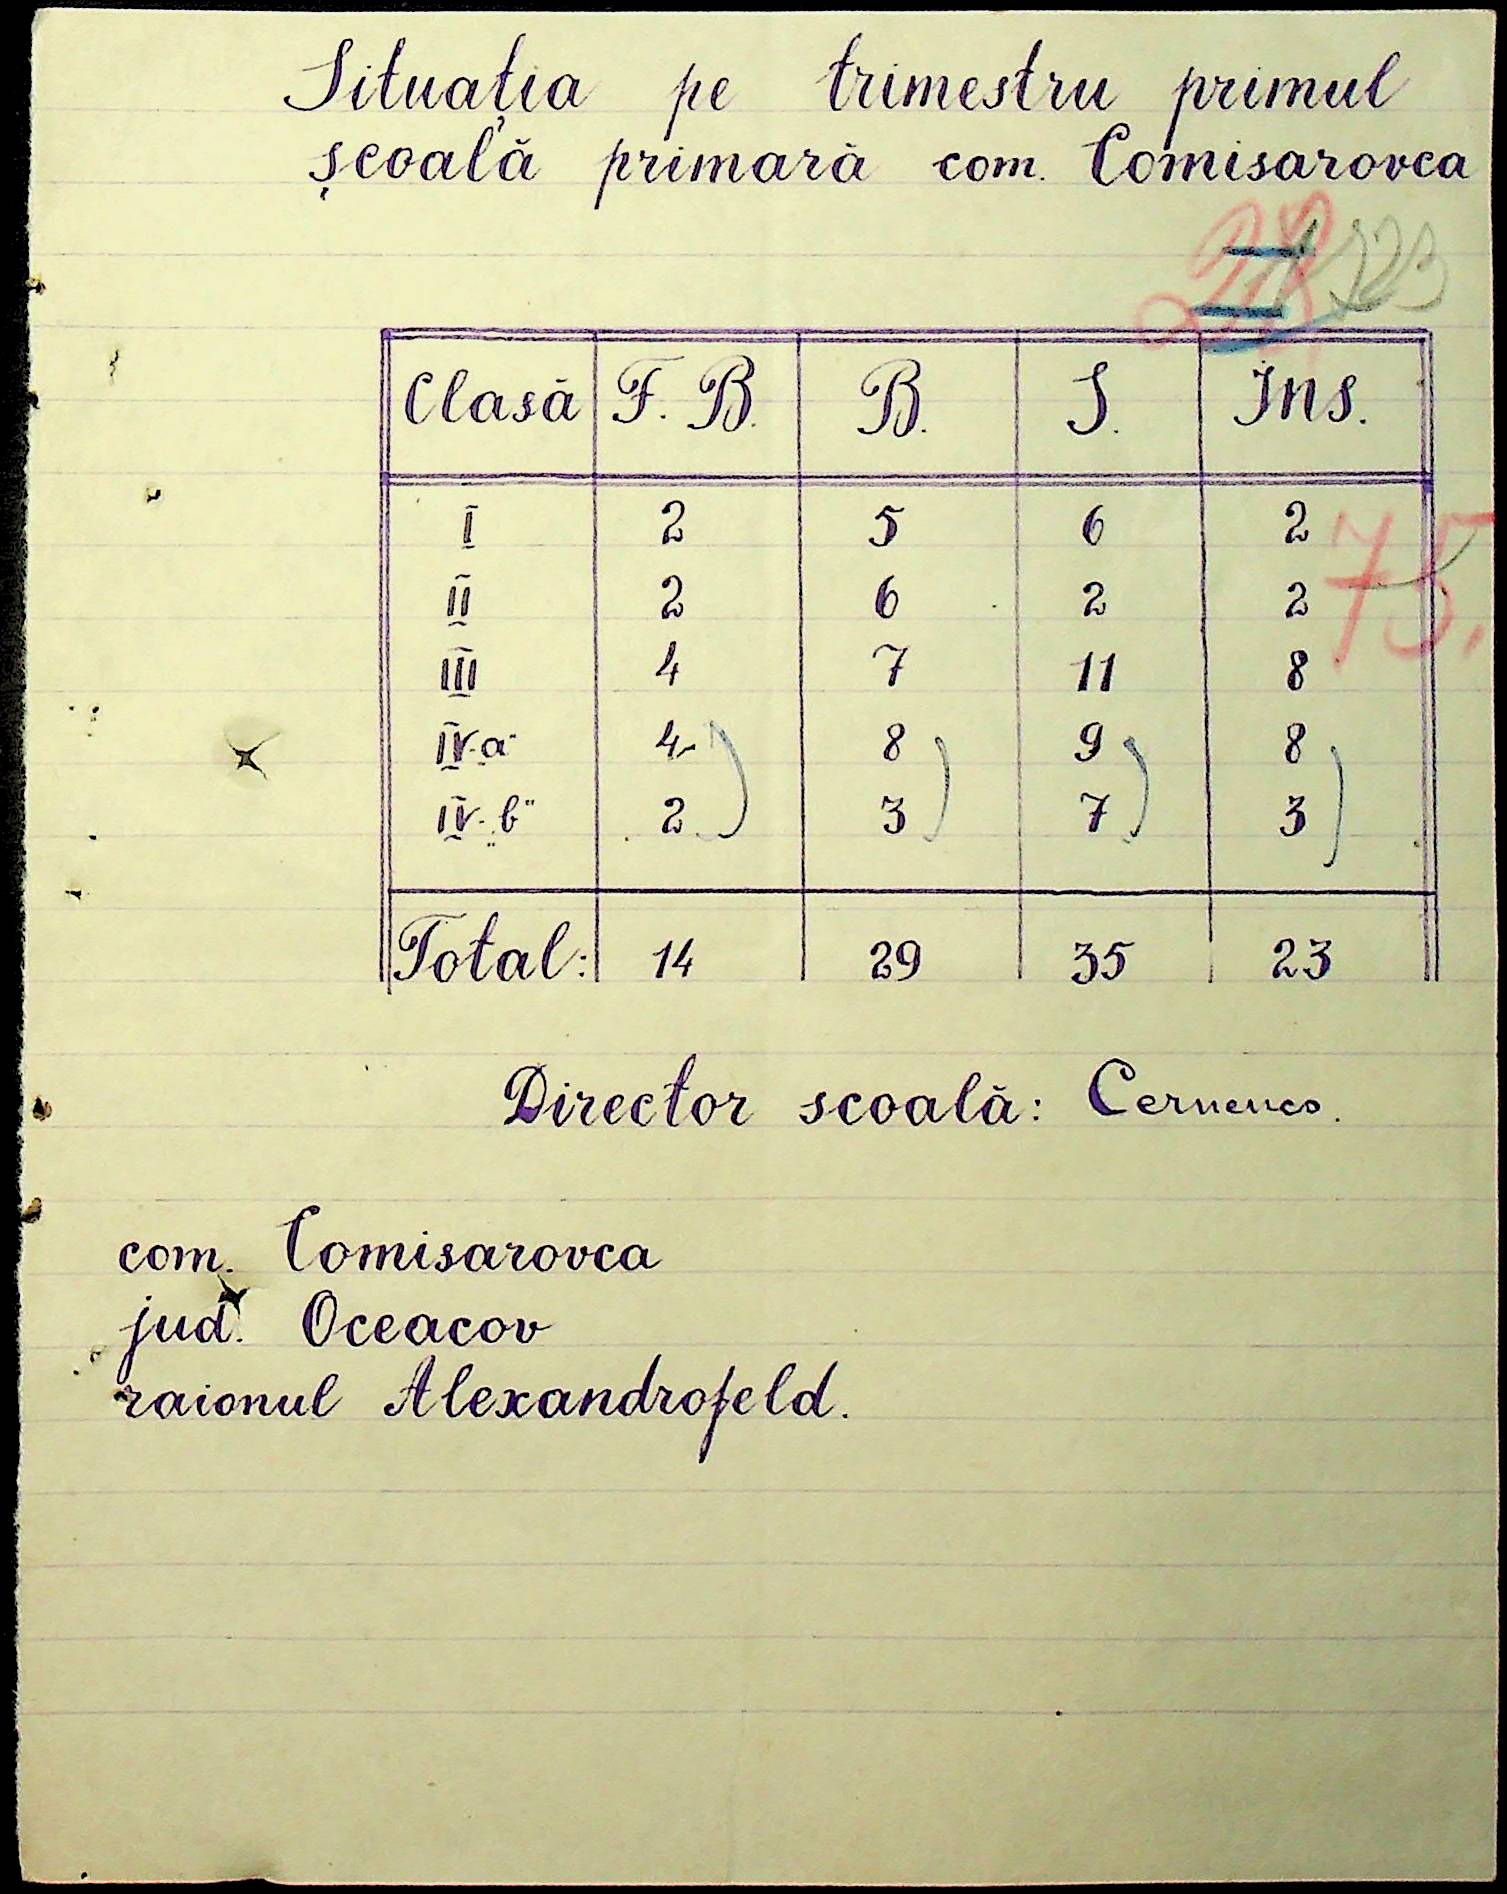 Situația pe trimestru primul
școală primară com. Comisarovca
123
Clasă F. B. B. S. Ins.
I 2 5 6 2
75.
II 2 6 2 2
III 4 7 11 8
IV-„a" 4 8 9 8
IV-„b" 2 3 7 3
Total: 14 29 35 23
Director scoală: Cernenco.
com. Comisarovca
jud. Oceacov
raionul Alexandrofeld.